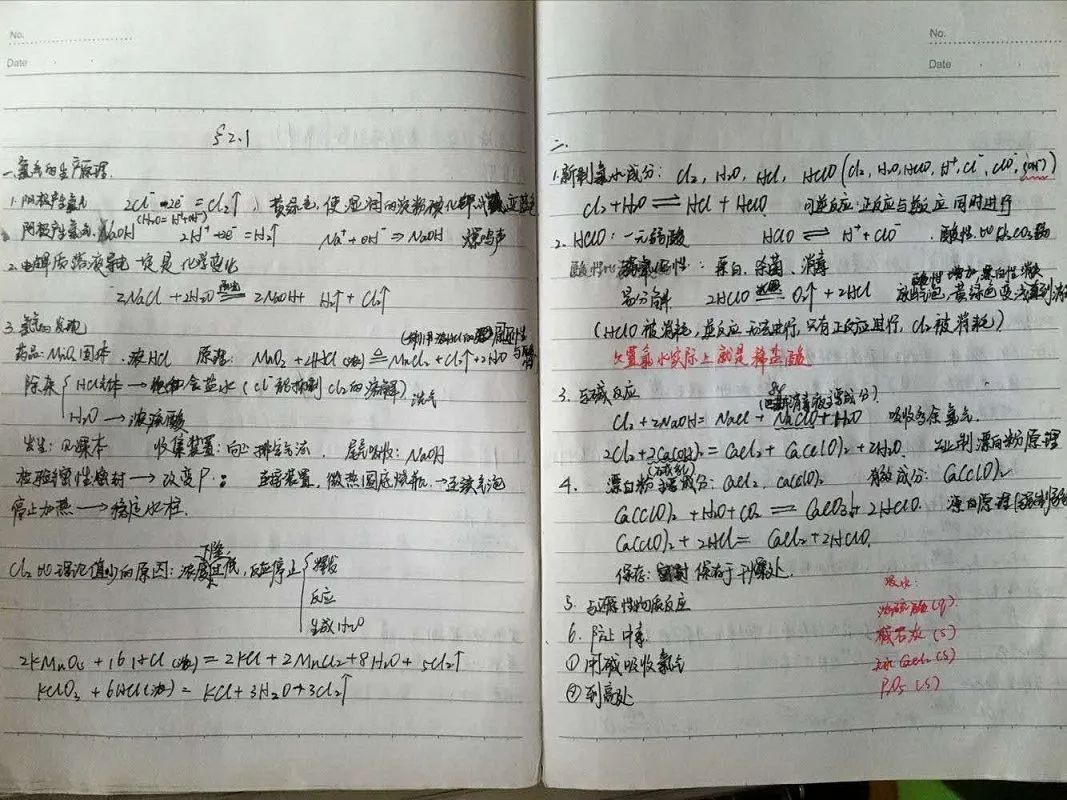 No.
Date
§2.1
一.氯气的生产原理.
1.阳极产氯气 2Cl⁻-2e⁻=Cl₂↑, 黄绿色, 使湿润的淀粉碘化钾试纸变蓝色
(H₂O=H⁺+OH⁻)
阴极产氢气, NaOH 2H⁺+2e⁻=H₂↑ Na⁺+OH⁻⇒NaOH 爆鸣声
2.电解质溶液导电一定是化学变化
2NaCl+2H₂O 通电 2NaOH+H₂↑+Cl₂↑
3.氯气的发现
药品:MnO₂固体.浓HCl 原理: MnO₂+4HCl(浓)≜MnCl₂+Cl₂↑+2H₂O
除杂 HCl气体→饱和食盐水(Cl⁻能抑制Cl₂的溶解) 洗气
H₂O→浓硫酸
发生:见课本 收集装置:向上排空气法 尾气吸收:NaOH
检验密性密封→改变P: 连接装置,微热圆底烧瓶→连续气泡
停止加热→稳定水柱.
下降
Cl₂比理论值少的原因:浓度过低,反应停止 挥发
反应
生成H₂O
2KMnO₄+16HCl(浓)=2KCl+2MnCl₂+8H₂O+5Cl₂↑
KClO₃+6HCl(浓)=KCl+3H₂O+3Cl₂↑
No.
Date
二.
1.新制氯水成分: Cl₂,H₂O,HCl,HClO(Cl₂,H₂O,HClO,H⁺,Cl⁻,ClO⁻,(OH⁻))
Cl₂+H₂O⇌HCl+HClO 可逆反应:正反应与逆反应同时进行
2.HClO:一元弱酸 HClO⇌H⁺+ClO⁻ .酸性:比H₂CO₃弱
强氧化性:漂白.除菌.消毒
酸性增加漂白性消失
易分解 2HClO 光照 O₂↑+2HCl 黄绿色变浅直到消
(HClO被消耗,逆反应无法进行,只有正反应进行,Cl₂被消耗)
久置氯水实际上就是稀盐酸
3.与碱反应
Cl₂+2NaOH=NaCl+NaClO+H₂O 吸收多余氯气.
2Cl₂+2Ca(OH)₂=CaCl₂+Ca(ClO)₂+2H₂O. 工业制漂白粉原理
4.漂白粉主要成分:CaCl₂,Ca(ClO)₂ 有效成分:Ca(ClO)₂
Ca(ClO)₂+H₂O+CO₂=CaCO₃↓+2HClO. 漂白原理
Ca(ClO)₂+2HCl=CaCl₂+2HClO.
保存:密封保存于干燥处.
5.与还原性物质反应
6.防止中毒
①用碱吸收氯气
②到高处
吸水:
浓硫酸(q)
碱石灰(s)
无水CaCl₂(s)
P₂O₅(s)